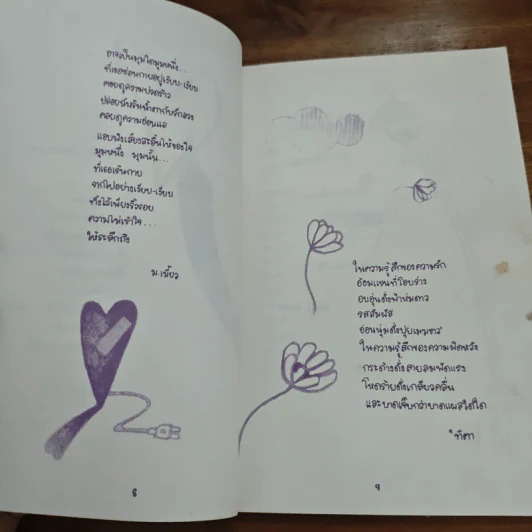 อาจเป็นมุมใดมุมหนึ่ง...
ที่เธอซ่อนกายอยู่เงียบ-เงียบ
คอยดูความปวดร้าว
ปล่อยฝันริมน้ำตากับรักลวง
คอยดูความอ่อนแอ
แอบฟังเสียงสะอื้นไห้ของใจ
มุมหนึ่ง มุมนั้น...
ที่เธอเดินกาย
จากไปอย่างเงียบ-เงียบ
ทิ้งไว้เพียงริ้วรอย
ความไม่เข้าใจ...
ให้ระลึกถึง
ม.เมี้ยว
๘
ในความรู้สึกของความรัก
อ้อมแขนที่โอบร่าง
อบอุ่นดั่งฟ้าห่มดาว
รสสัมผัส
อ่อนนุ่มดั่งปุยเมฆขาว
ในความรู้สึกของความผิดหวัง
กระด้างดั่งสายลมพัดแรง
โหดร้ายดั่งเกลียวคลื่น
และบาดเจ็บกว่าบาดแผลใดใด
ทิตา
๙